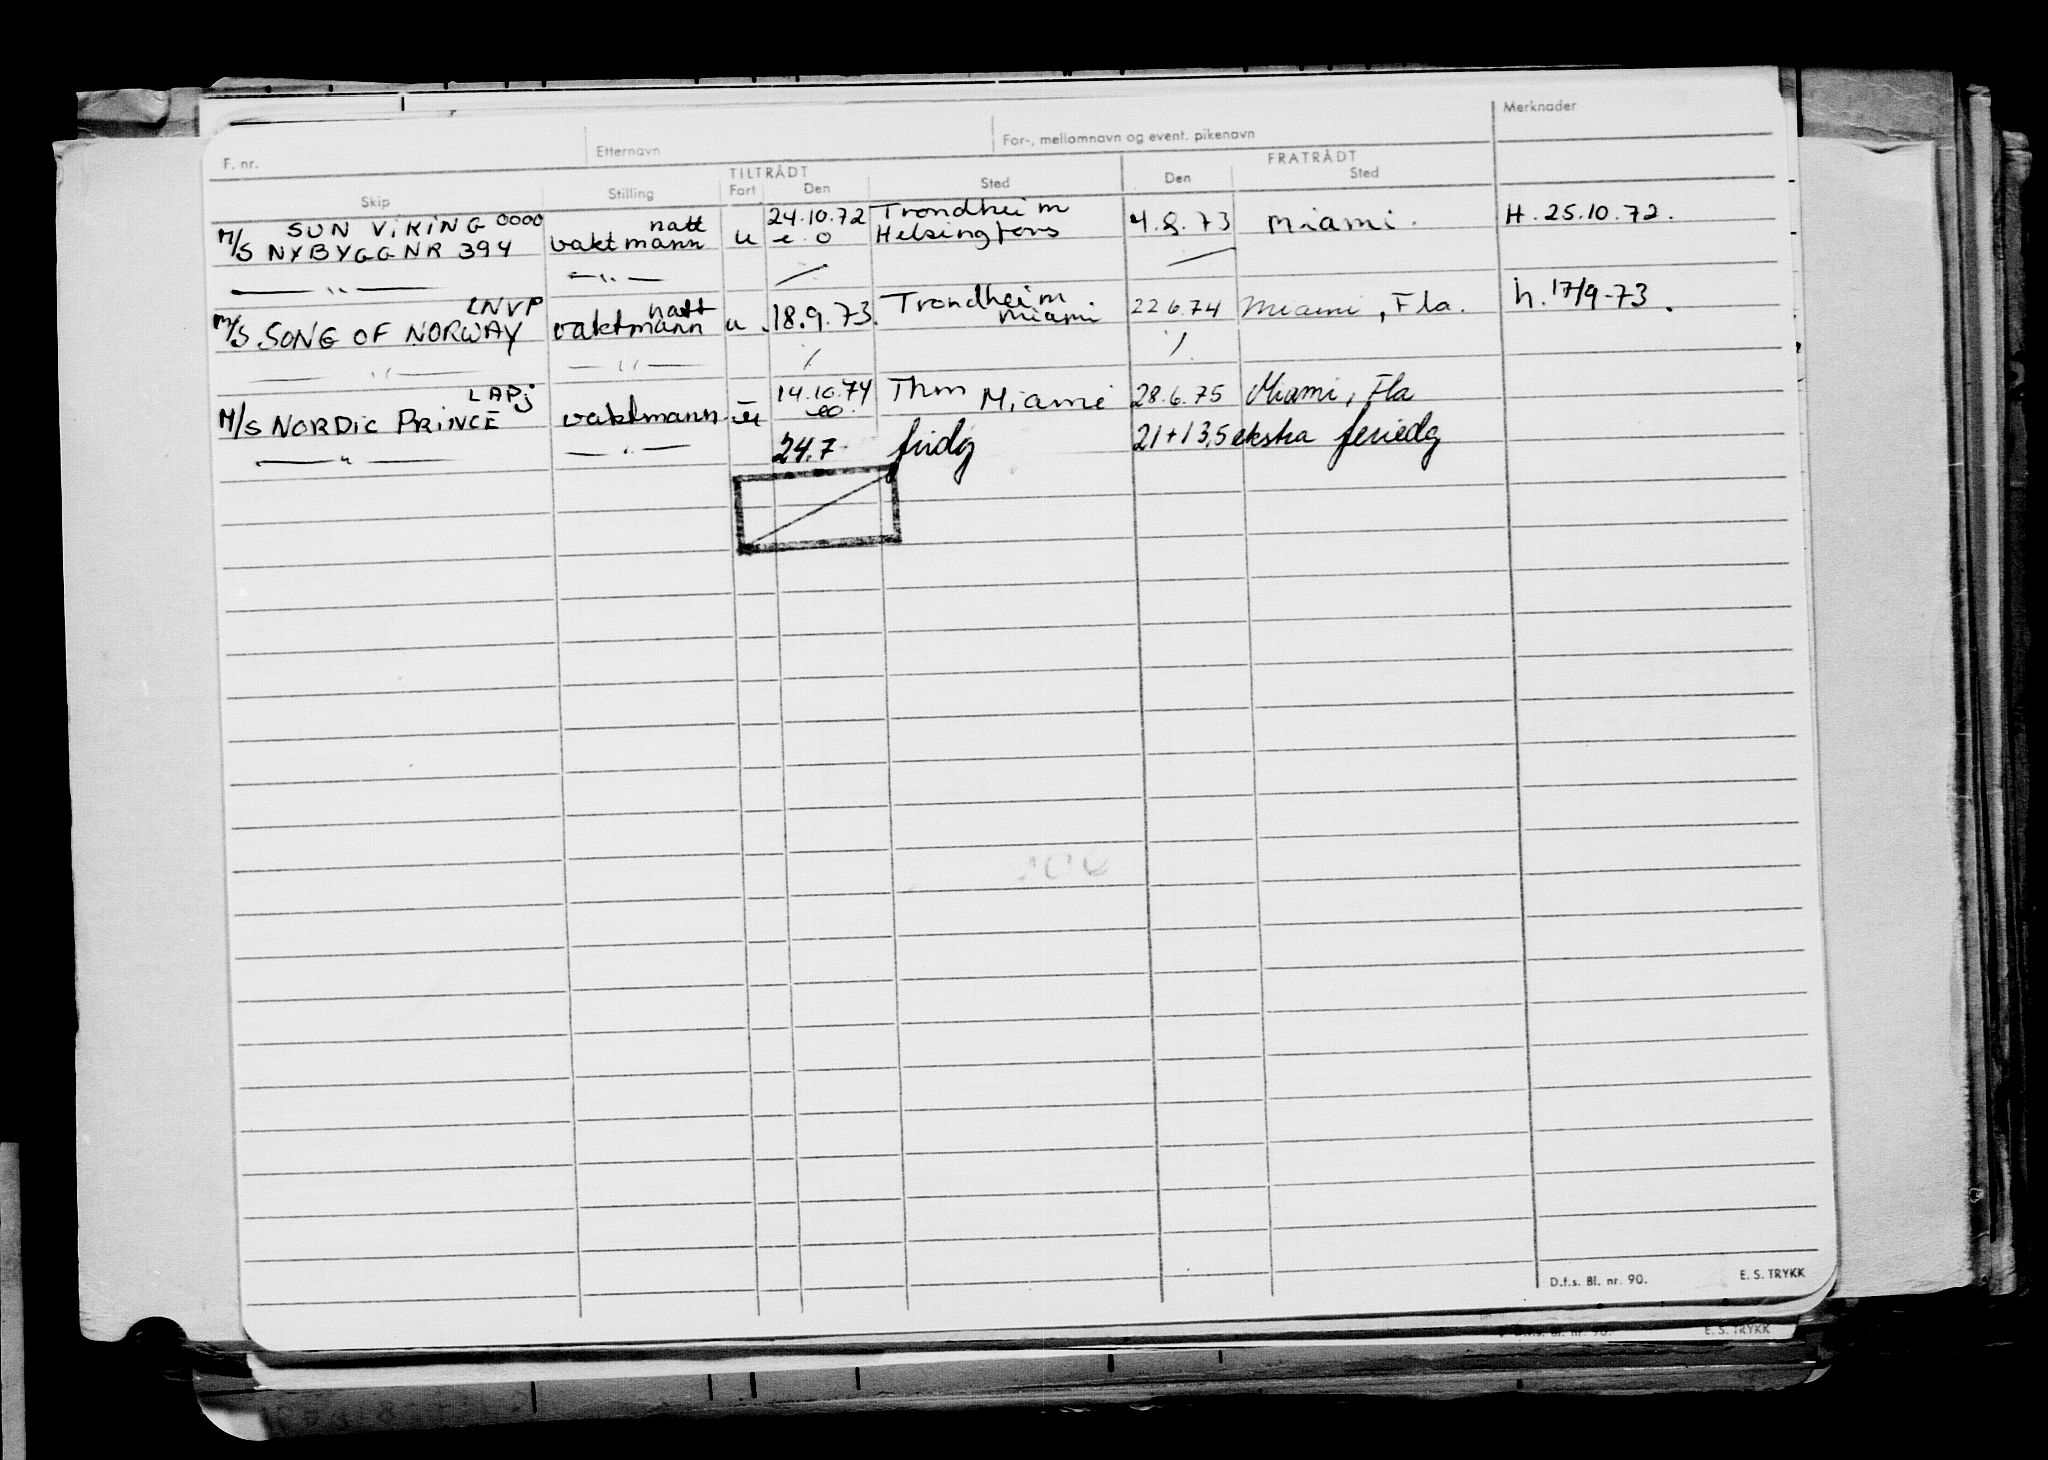 F. nr. Etternavn For-, mellomnavn og event. pikenavn Merknader
TILTRÅDT FRATRÅDT
Skip Stilling Fart Den Sted Den Sted
SUN VIKING 0000 natt 24.10.72 Trondheim
M/S NYBYGG NR 394 vaktmann u e.o Helsingfors 4.8.73 Miami. H. 25.10.72.
— " — — " —
LNVP natt Trondheim
M/S SONG OF NORWAY vaktmann u 18.9.73. Miami. 22.6.74 Miami, Fla. h. 17/9-73.
— " — — " —
LAPJ 14.10.74 Thm
M/S NORDIC PRINCE vaktmann u eo. Miami 28.6.75 Miami, Fla
— " — — " — 24.7 fridg 21+13,5 ekstra feriedg
D.f.s. Bl. nr. 90. E. S. TRYKK
D.f.s. Bl. nr. 90. E. S. TRYKK